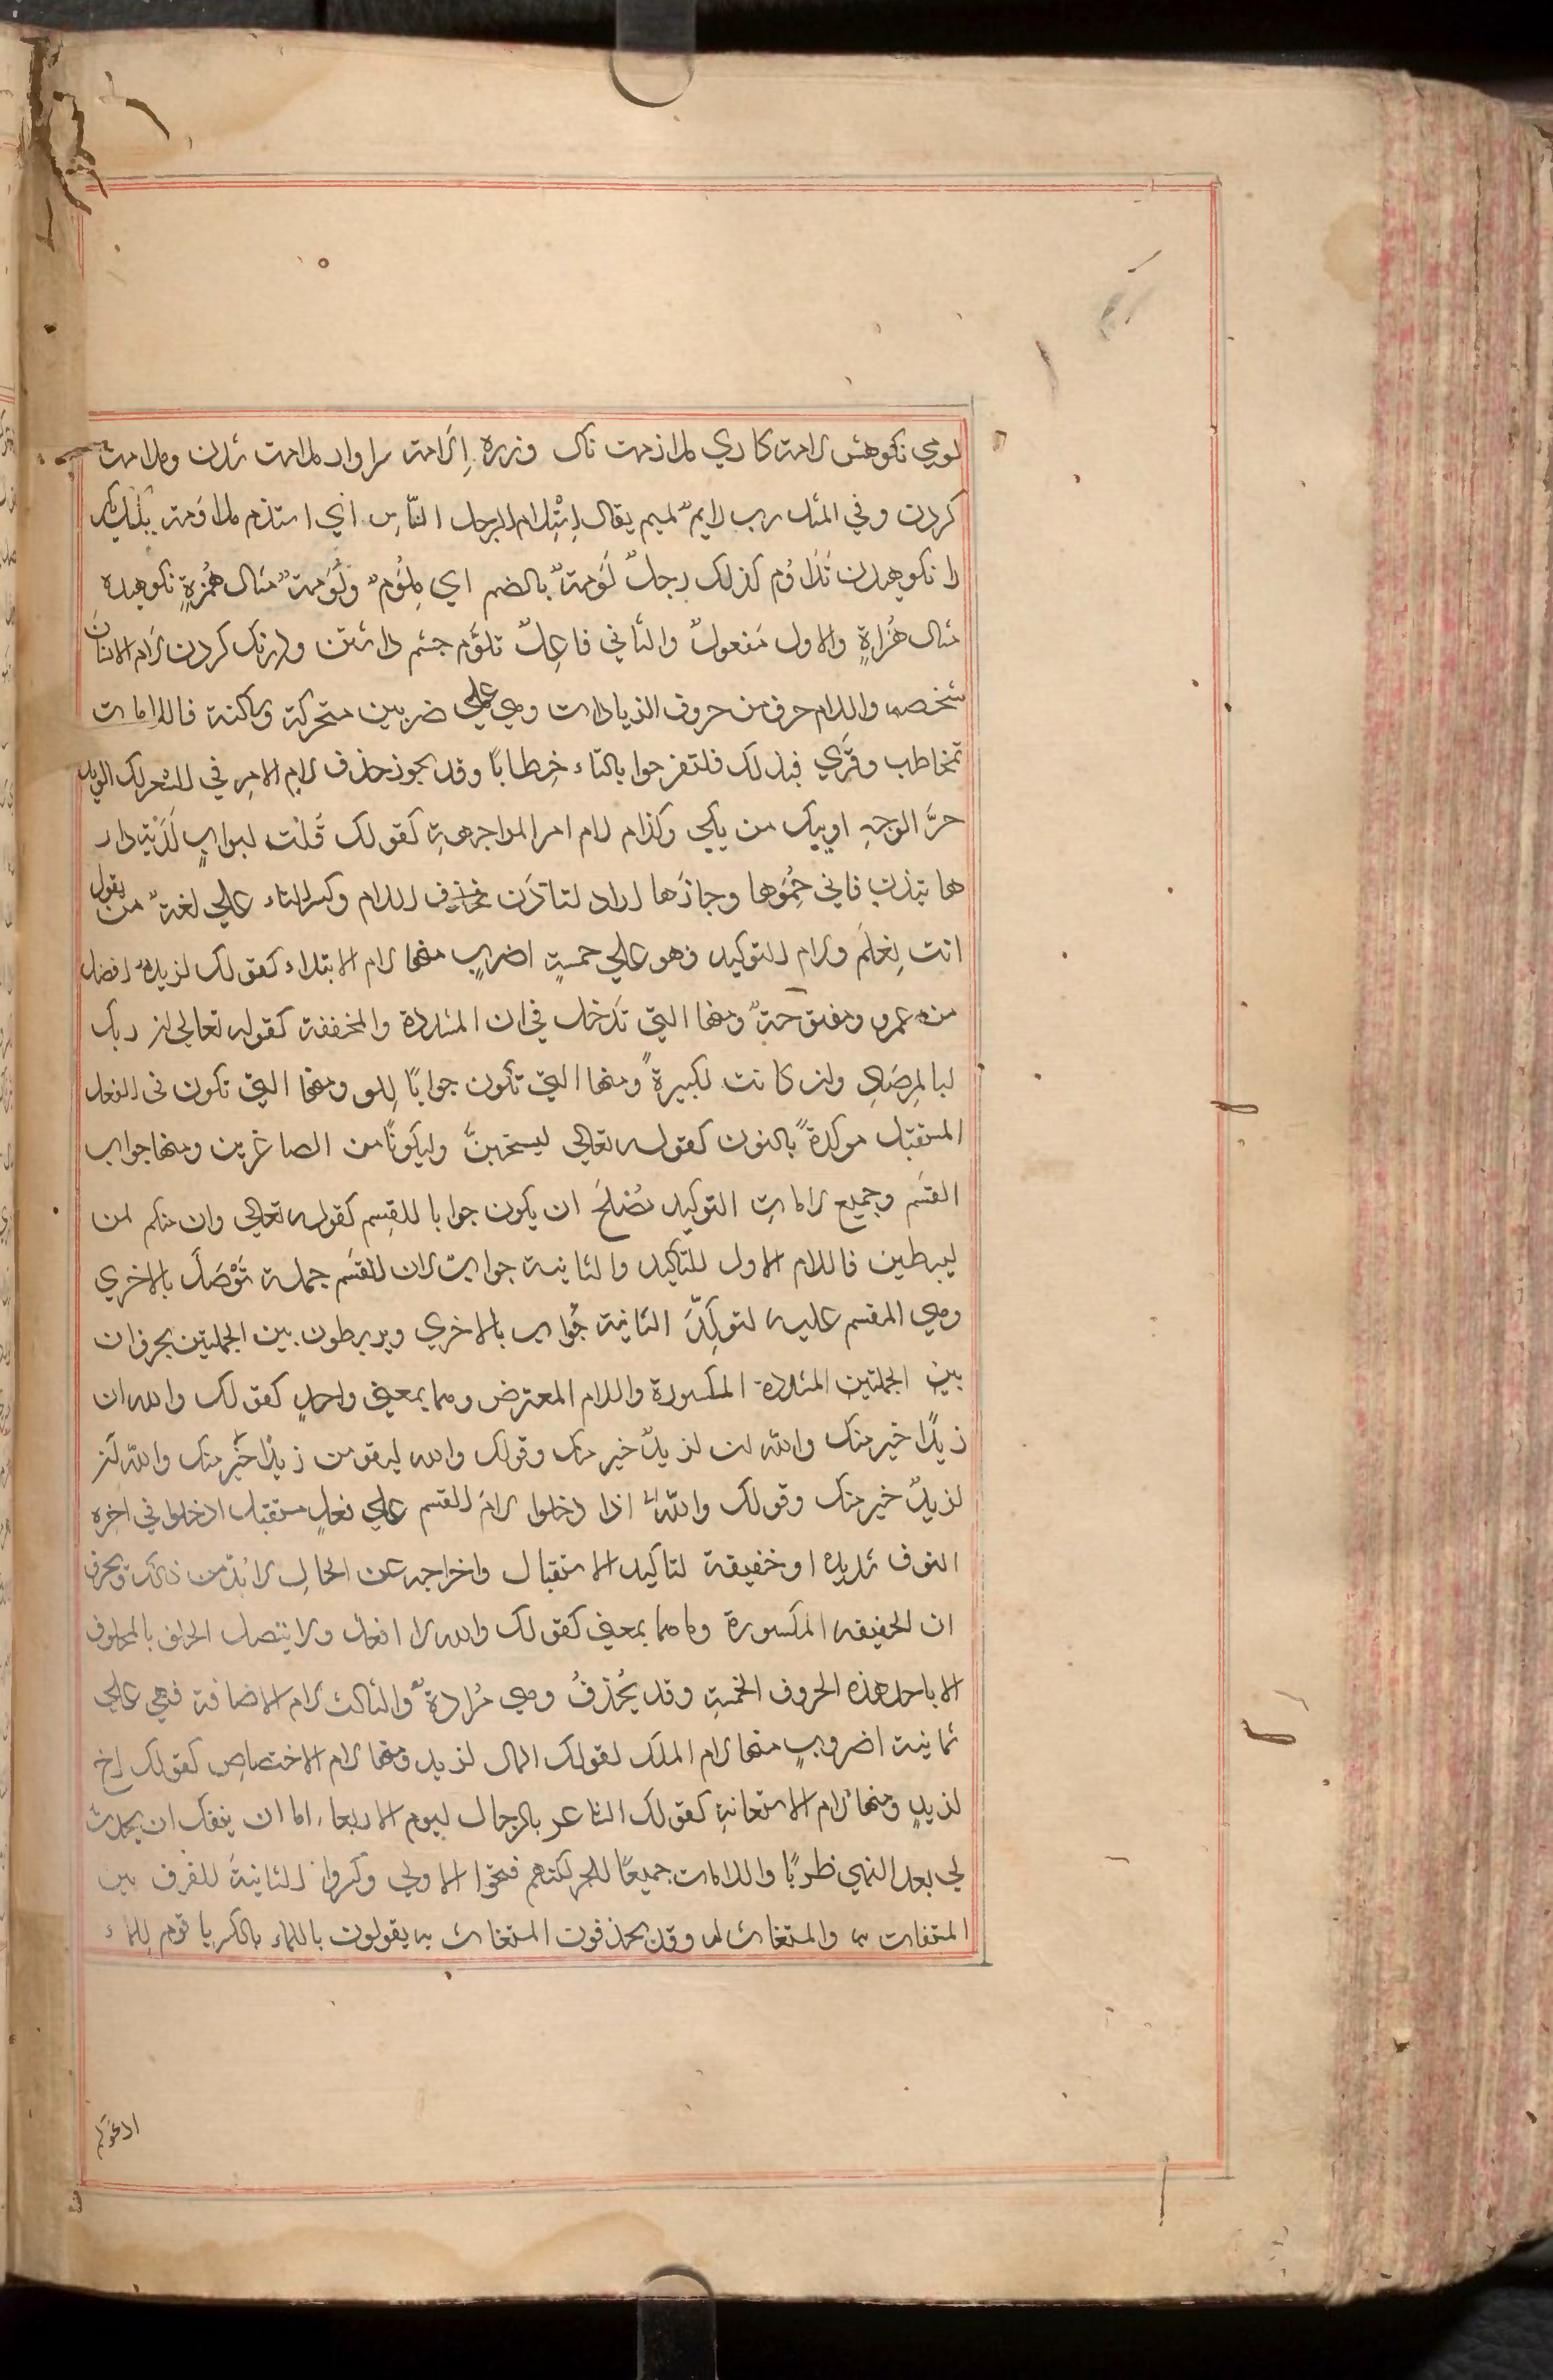 لومي نكوهش لامة كاري ملامت ناك وزره إلامة سزاوار ملامت شدن وملامت
كردن وفي المثل رب لايم مليم يقال اِسْتِلام الرجل النّاس اي استذم ملاومة يكديكر
را نكوهيدن تَلاوُم كذلك رجلٌ لُومةٌ بالضم اي مَلُومٌ ولُوَمةٌ مثال هُمَزةٍ نكوهيده
مثال هُزاةٍ والاول مَفعولٌ والثاني فاعِلٌ تلوُّم چشم داشتن ودرنك كردن لام الانسان
شخصه واللام حرف من حروف الزيادات وهي علي ضربين متحركة وساكنة فاللامات
تخاطب وقرَي فبذلك فلتفرحوا بالتاء خِطابًا وقد يجوز حذف لام الامر في الشعر لك الويل
حرَّ الوجهِ او يبك من بكي وكذا لام امر المواجهةِ كقولك قُلت لبوابٍ لَدَيْهِ دار
ها تيذن فاني حَمُوها وجارُها اراد لتاذَن فحذف اللام وكسر التاء علي لغة من يقول
انت تِعْلَم ولام للتوكيد وهو علي خمسةِ اضربٍ منها لام الابتداء كقولك لزيدٌ افضل
من عمرو ومفتوحةٌ ومنها التي تَدخل في ان المشددة والمخففة كقوله تعالي ان ربك
لبالمِرصَادِ وان كانت لكبيرةً ومنها التي تكون جوابًا لِلو ومنها التي تكون في الفعل
المستقبل موكدةً بالنون كقوله تعالي ليسجننَّ وليكونًا من الصاغرين ومنها جواب
القسَم وجميع لاماتِ التوكيد تصْلحَ ان يكون جوابا للقسِم كقوله تعالي وان منكم لمن
ليبطين فاللام الاول للتاكيد والثانية جواب لان للقسَم جملة تَوْصَل بالاخري
وهي المقسم عليه لتوكِّدَ الثانية جُواب بالاخري ويربطون بين الجملتين بحرف ان
بين الجملتين المشددة المكسورة واللام المعترض وهما بمعني واحدٍ كقولك والله ان
زيدًا خير منك والله لزيدٌ خير منك وقولك والله ليقومن زيدًا خيَر منك والله
لزيدٌ خير منك وقولك واللهُ اذا دخلوا لامَ القسم علي فعلٍ مستقبل ادخلوا في اخره
النون شديده او خفيفة لتاكيد الاستقبال واخراجه عن الحالِ لا بُدّ من ذلك وبحرف
ان الخفيفه المكسورة وما هما بمعني كقولك والله لا افعل ولا يتصل الحلف بالمحلوف
الا باحد هذه الحروف الخمسةِ وقد يُحذفُ وهي مُرادةٌ والثالث لام الاضافة فهي علي
ثمانية اضروبٍ منها لام الملك لقولك المال لزيد ومنها لام الاختصاصِ كقولك اخ
لزيدٍ ومنها لام الاستعانةِ كقولك الشاعر بالرجال ليوم الاربعا اما ان ينفك ان يحدث
لي بعد النهي طربًا واللامات جميعًا للجر لكنهم فتحوا الاولي وكسروا الثانيةَ للفرق بين
المستغاث به والمستغاث له وقد يحذفون المستغاث به يقولون ياللماء بالكسر يا قوم لِلماء
ادعوكم